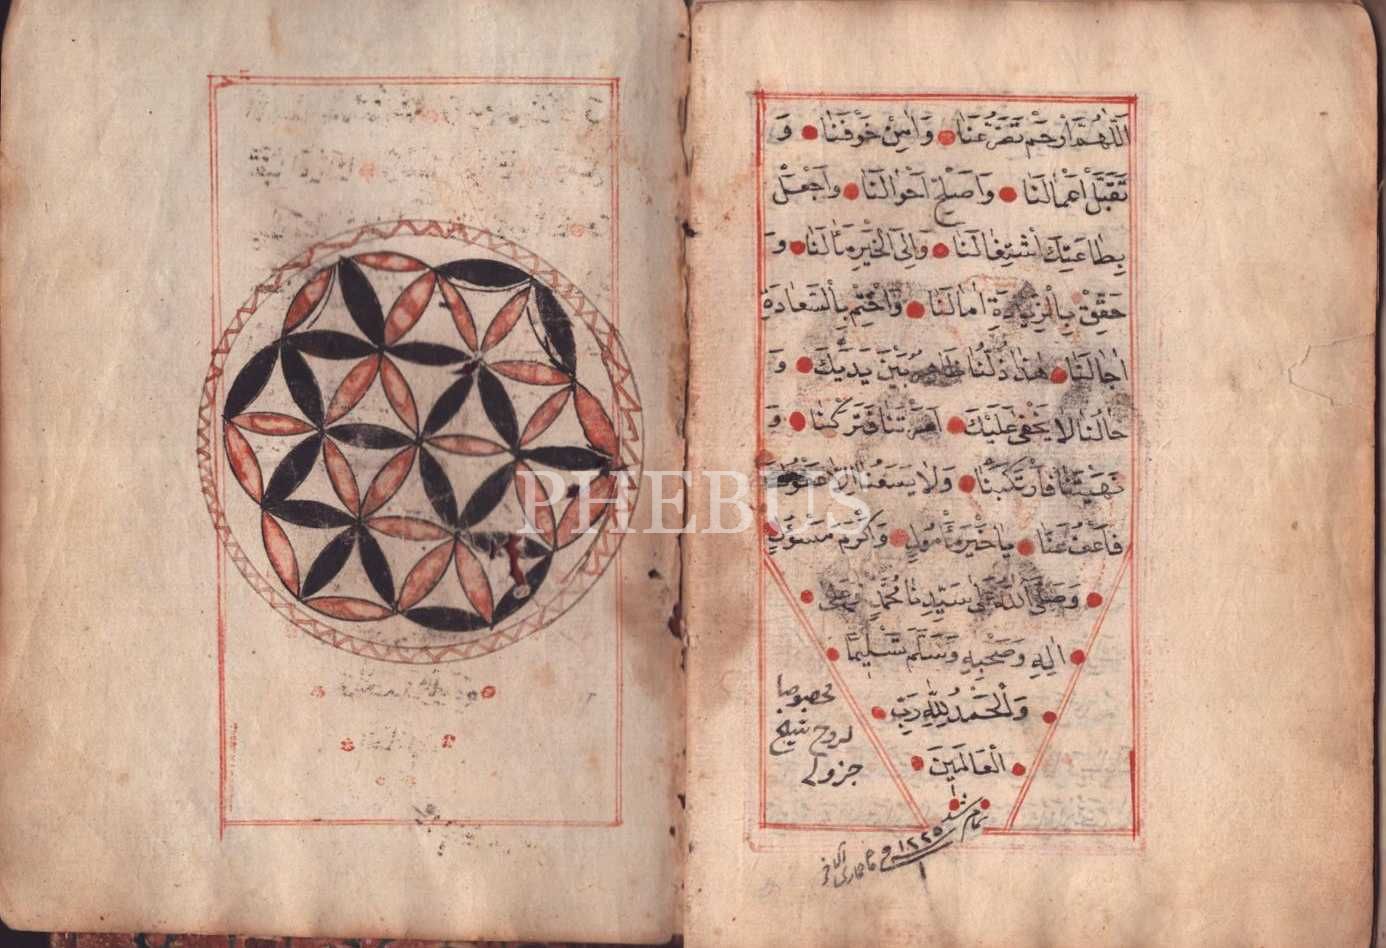 اَللّٰهُمَّ ارْحَمْ تَضَرُّعَنَا وَاٰمِنْ خَوْفَنَا وَ
تَقَبَّلْ اَعْمَالَنَا وَاَصْلِحْ اَحْوَالَنَا وَاجْعَلْ
بِطَاعَتِكَ اشْتِغَالَنَا وَاِلَى الْخَيْرِ مَاٰلَنَا وَ
حَقِّقْ بِالزِّيَادَةِ اٰمَالَنَا وَاخْتِمْ بِالسَّعَادَةِ
اٰجَالَنَا هٰذَا ذُلُّنَا ظَاهِرٌ بَيْنَ يَدَيْكَ وَ
حَالُنَا لَا يَخْفٰى عَلَيْكَ اَمَرْتَنَا فَتَرَكْنَا وَ
نَهَيْتَنَا فَارْتَكَبْنَا وَلَا يَسَعُنَا اِلَّا عَفْوُكَ
فَاعْفُ عَنَّا يَا خَيْرَ مَأْمُولٍ وَاَكْرَمَ مَسْؤُلٍ
وَصَلَّى اللّٰهُ عَلٰى سَيِّدِنَا مُحَمَّدٍ وَعَلٰى
اٰلِهِ وَصَحْبِهِ وَسَلَّمَ تَسْلِيمًا
وَالْحَمْدُ لِلّٰهِ رَبِّ
الْعَالَمِينَ
مخصوصا
لروح شيخ
جزولى
تمام شد
١٢٢٥
PHEBUS